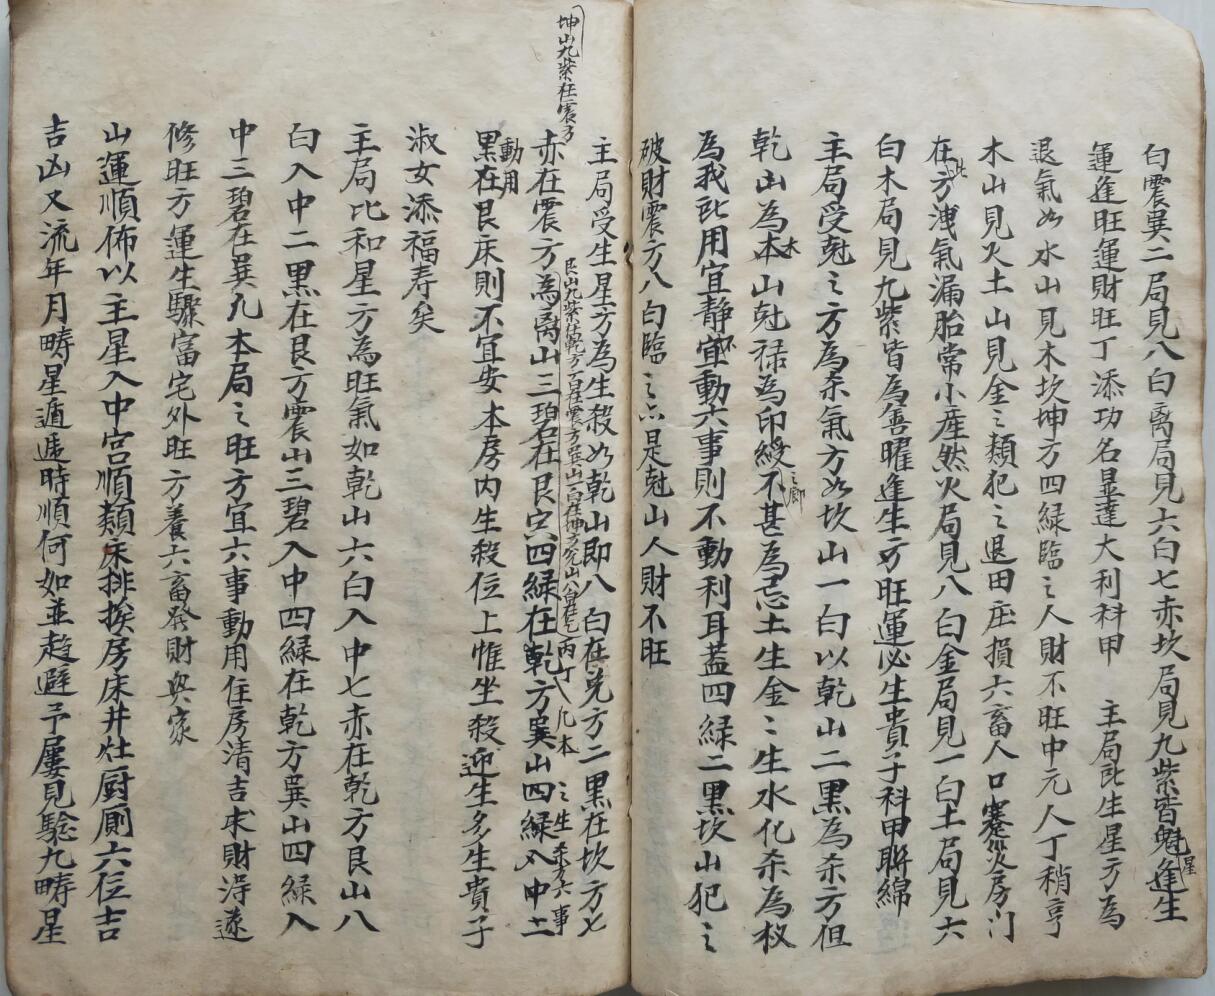 白震巽二局見八白离局見六白七赤坎局見九紫皆魁星逢生
運逢旺運財旺丁添功名显達大利科甲 主局所生星方為
退氣如水山見木坎坤方四緑臨之人財不旺中元人丁稍亨
木山見火土山見金之類犯之退田庄損六畜人口蹇災房门
在此方洩氣漏胎常小産然火局見八白金局見一白土局見六
白木局見九紫皆為善曜逢生方旺運必生貴子科甲联綿
主局受尅之方為杀氣方如坎山一白以乾山二黑為杀方但
乾山為本水山尅禄為印綬之鄉不甚為忌土生金之生水化杀為权
為我所用宜静宜動六事則不動利耳蓋四緑二黑坎山犯之
破財震方八白臨之亦是尅山人財不旺
坤山九紫在震方
主局受生星方為生殺如乾山即八白在兑方二黑在坎方七
艮山九紫在乾方一白在震方巽山一白在坤方兑山八白在
丙丁八凡本之生杀方六事動用
赤在震方為离山三碧在艮宫四緑在乾方巽山四緑入中二
黑在艮床則不宜安本房内生殺位上惟坐殺迎生多生貴子
淑女添福寿矣
主局比和星方為旺氣如乾山六白入中七赤在乾方艮山八
白入中二黑在艮方震山三碧入中四緑在乾方巽山四緑入
中三碧在巽九本局之旺方宜六事動用住房清吉求財淂遂
修旺方運生驟富宅外旺方養六畜發財與家
山運順佈以主星入中宫順類床排挨房床井灶厨厠六位吉
吉凶又流年月疇星遁逓時順何如並趋避予屢見騐九疇星